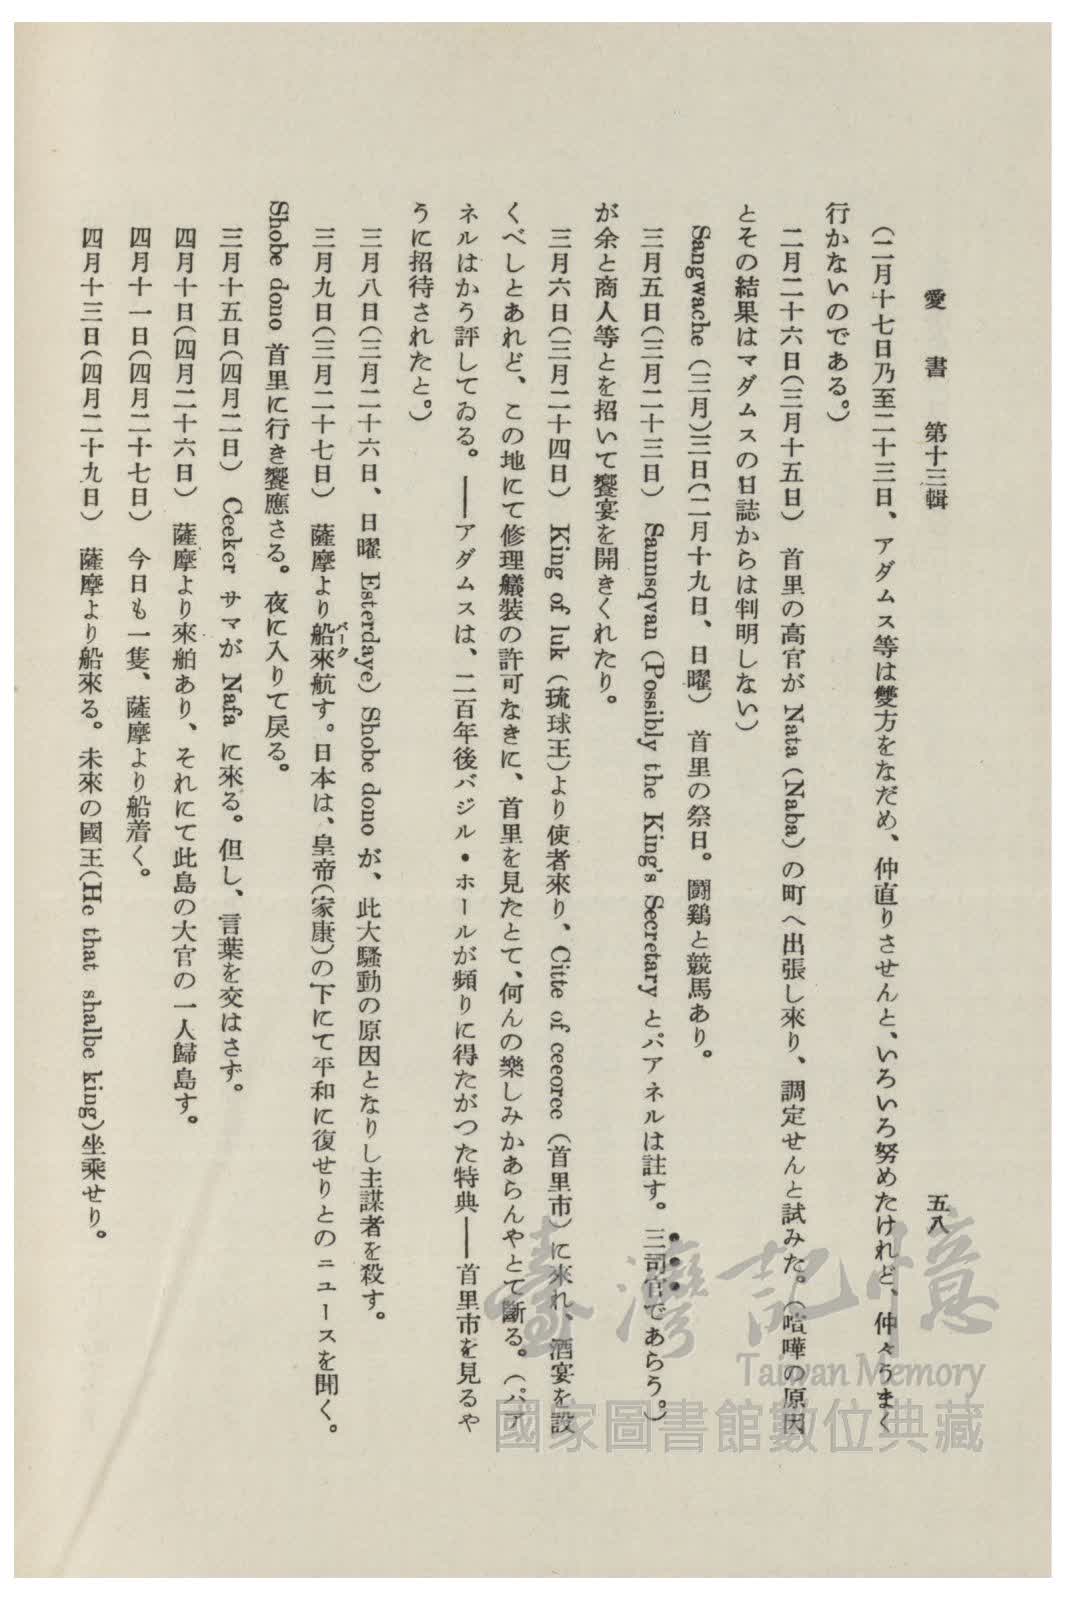 愛書　第十三輯
五八
（二月十七日乃至二十三日、アダムス等は雙方をなだめ、仲直りさせんと、いろいろ努めたけれど、仲々うまく
行かないのである。）
二月二十六日（三月十五日）　首里の高官が Nata (Naba) の町へ出張し來り、調定せんと試みた。（喧嘩の原因
とその結果はマダムスの日誌からは判明しない）
Sangwache（三月）三日（二月十九日、日曜）　首里の祭日。鬪鷄と競馬あり。
三月五日（三月二十三日）　Sannsqvan (Possibly the King's Secretary とパアネルは註す。三司官であらう。）
が余と商人等とを招いて饗宴を開きくれたり。
三月六日（三月二十四日）　King of luk（琉球王）より使者來り、Citte of ceeoree（首里市）に來れ、酒宴を設
くべしとあれど、この地にて修理艤装の許可なきに、首里を見たとて、何んの樂しみかあらんやとて斷る。（パア
ネルはかう評してゐる。――アダムスは、二百年後バジル・ホールが頻りに得たがつた特典――首里市を見るや
うに招待されたと。）
三月八日（三月二十六日、日曜 Esterdaye) Shobe dono が、此大騷動の原因となりし主謀者を殺す。
三月九日（三月二十七日）　薩摩より船來航す。日本は、皇帝（家康）の下にて平和に復せりとのニュースを聞く。
バーク
Shobe dono 首里に行き饗應さる。夜に入りて戻る。
三月十五日（四月二日）　Ceeker サマが Nafa に來る。但し、言葉を交はさず。
四月十日（四月二十六日）　薩摩より來舶あり、それにて此島の大官の一人歸島す。
四月十一日（四月二十七日）　今日も一隻、薩摩より船着く。
四月十三日（四月二十九日）　薩摩より船來る。未來の國王（He that shalbe king）坐乘せり。
臺灣記憶
Taiwan Memory
國家圖書館數位典藏